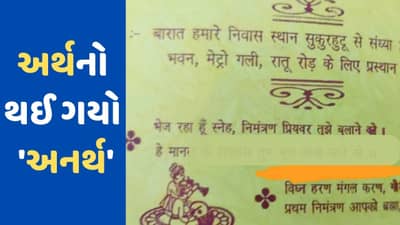 અર્થનો
થઈ ગયો
'અનર્થ'
:- बारात हमारे निवास स्थान सुकुरहुटू से संध्या
भवन, मेट्रो गली, रातू रोड़ के लिए प्रस्थान
भेज रहा हूँ स्नेह, निमंत्रण प्रियवर तुझे बुलाने को।
हे मानस
विघ्न हरण मंगल करण,
प्रथम निमंत्रण आपको